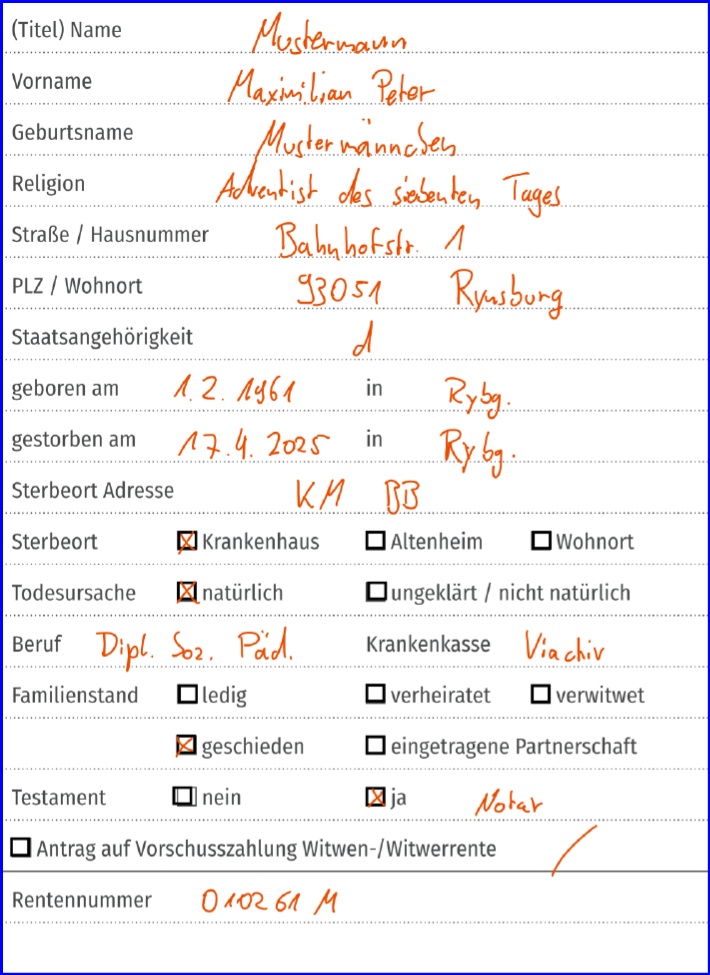 (Titel) Name Mustermann
Vorname Maximilian Peter
Geburtsname Mustermännchen
Religion Adventist des siebenten Tages
Straße / Hausnummer Bahnhofstr. 1
PLZ / Wohnort 93051 Rynsburg
Staatsangehörigkeit d
geboren am 1.2.1961 in Rybg.
gestorben am 17.4.2025 in Rybg.
Sterbeort Adresse KM BB
Sterbeort ☒ Krankenhaus ☐ Altenheim ☐ Wohnort
Todesursache ☒ natürlich ☐ ungeklärt / nicht natürlich
Beruf Dipl. Soz. Päd. Krankenkasse Viachiv
Familienstand ☐ ledig ☐ verheiratet ☐ verwitwet
☒ geschieden ☐ eingetragene Partnerschaft
Testament ☐ nein ☒ ja Notar
☐ Antrag auf Vorschusszahlung Witwen-/Witwerrente /
Rentennummer 010261 M